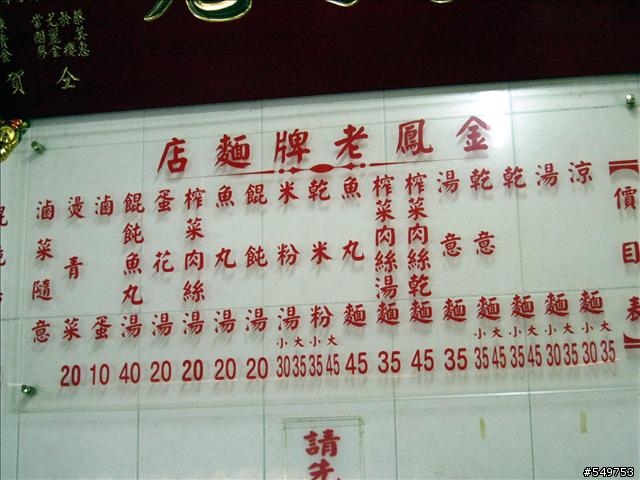 全
賀
金鳳老牌麵店
價目表
涼麵 小30 大35
湯麵 小30 大35
乾麵 小35 大45
乾意麵 小35 大45
湯意麵 35
榨菜肉絲乾麵 45
榨菜肉絲湯麵 35
魚丸麵 45
乾米粉 小35 大45
米粉湯 小30 大35
餛飩湯 20
魚丸湯 20
榨菜肉絲湯 20
蛋花湯 20
餛飩魚丸湯 40
滷蛋 10
燙青菜 20
滷菜隨意
請先
#549753